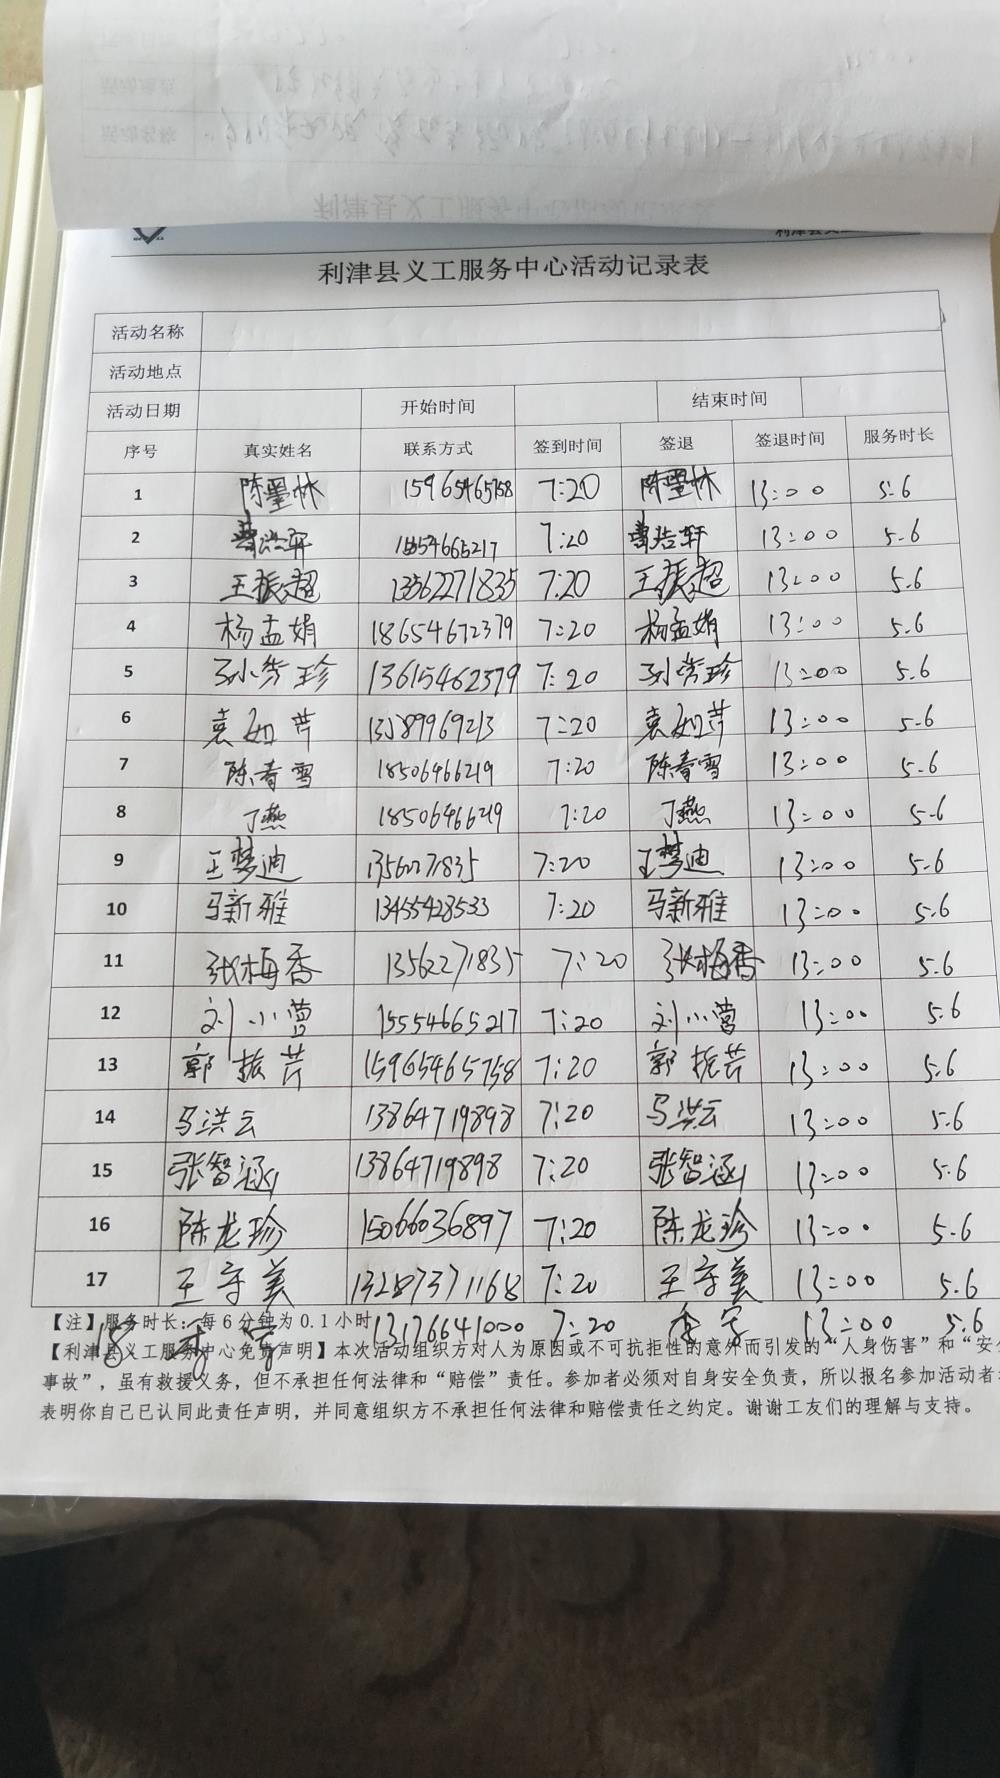 利津县义工服务中心活动记录表
活动名称
活动地点
活动日期 开始时间 结束时间
序号 真实姓名 联系方式 签到时间 签退 签退时间 服务时长
1 陈墨林 15965465758 7:20 陈墨林 13:00 5.6
2 曹浩轩 15554665217 7:20 曹浩轩 13:00 5.6
3 王振超 13562271835 7:20 王振超 13:00 5.6
4 杨孟娟 18654672379 7:20 杨孟娟 13:00 5.6
5 孙秀珍 13615462379 7:20 孙秀珍 13:00 5.6
6 袁如芹 13589969213 7:20 袁如芹 13:00 5.6
7 陈青雪 18506466219 7:20 陈青雪 13:00 5.6
8 丁燕 18506466219 7:20 丁燕 13:00 5.6
9 王梦迪 13562271835 7:20 王梦迪 13:00 5.6
10 马新雅 13455428533 7:20 马新雅 13:00 5.6
11 张梅香 13562271835 7:20 张梅香 13:00 5.6
12 刘小营 15554665217 7:20 刘小营 13:00 5.6
13 郭振芹 15965465758 7:20 郭振芹 13:00 5.6
14 马洪云 13864719898 7:20 马洪云 13:00 5.6
15 张智涵 13864719898 7:20 张智涵 13:00 5.6
16 陈龙珍 15066036897 7:20 陈龙珍 13:00 5.6
17 王守美 13287371168 7:20 王守美 13:00 5.6
【注】服务时长：每6分钟为0.1小时
18 13176641000 7:20 13:00 5.6
【利津县义工服务中心免责声明】本次活动组织方对人为原因或不可抗拒性的意外而引发的“人身伤害”和“安
事故”，虽有救援义务，但不承担任何法律和“赔偿”责任。参加者必须对自身安全负责，所以报名参加活动者
表明你自己已认同此责任声明，并同意组织方不承担任何法律和赔偿责任之约定。谢谢工友们的理解与支持。